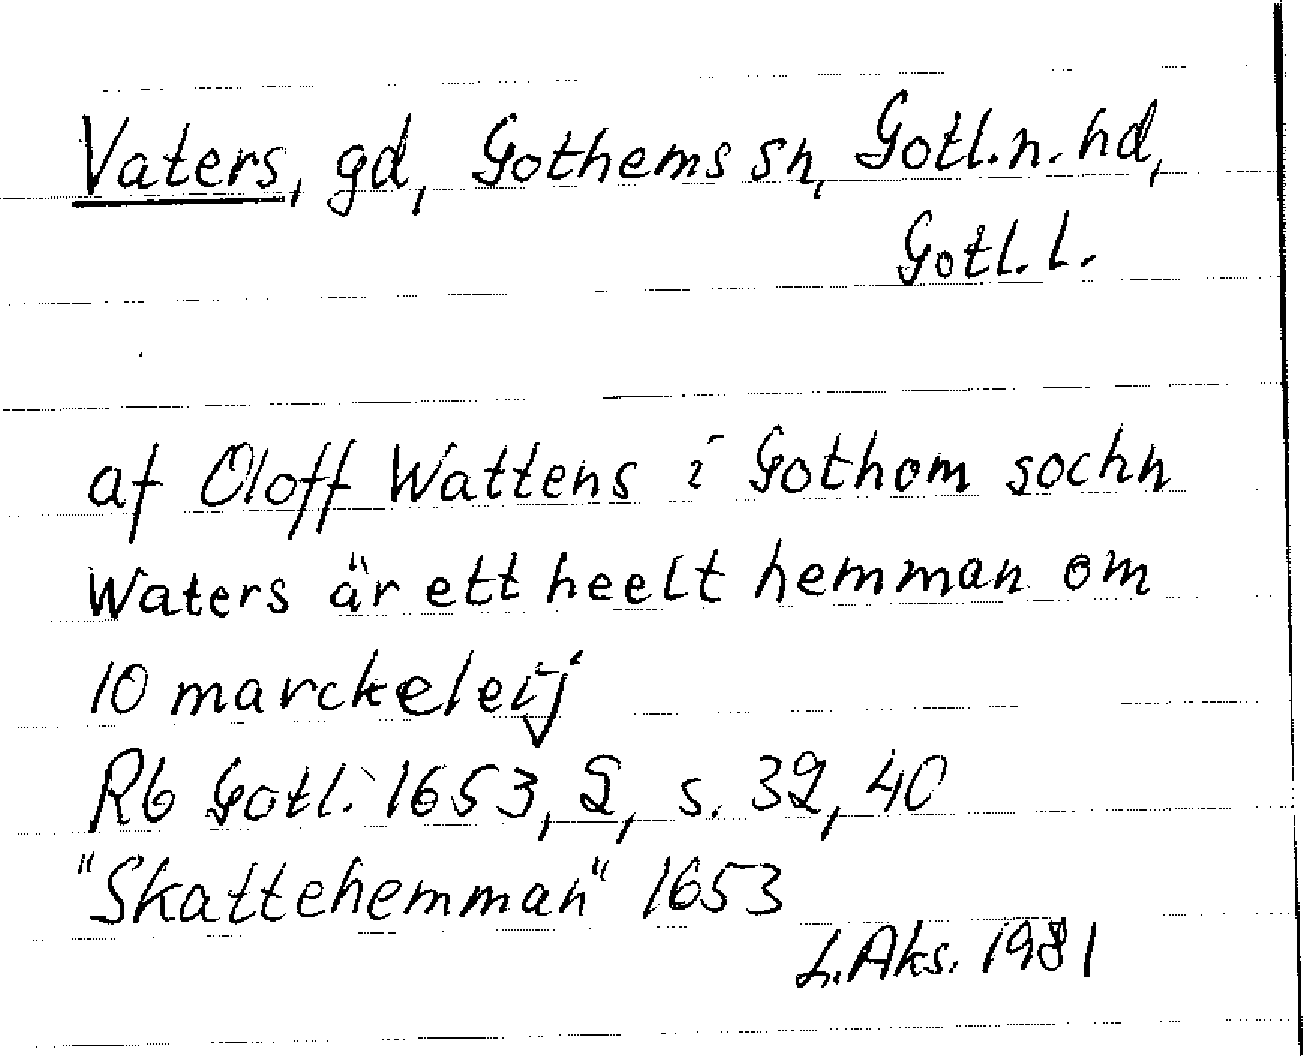 Vaters, gd, Gothems sn, Gotl. n. hd,
Gotl. l.
af Oloff Wattens i Gothom sochn
Waters är ett heelt hemman om
10 marckeleij
Rb Gotl. 1653, 2, s. 32, 40
"Skattehemman" 1653
L. Aks. 1981